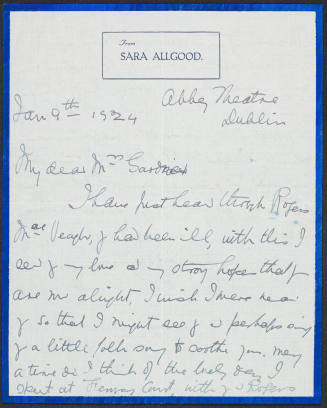 From
SARA ALLGOOD.
Abbey Theatre
Dublin
Jan 9th 1924
My dear Mrs Gardner
I have just hear through Rogers
MacVeagh, y had been ill, with this I
send y my love & my strong hopes that y
are now alright, I wish I were near
y so that I might see y & perhaps sing
y a little folk song to soothe you. Many
a time do I think of the lovely day I
spent at Fenway Court, with y & Rogers